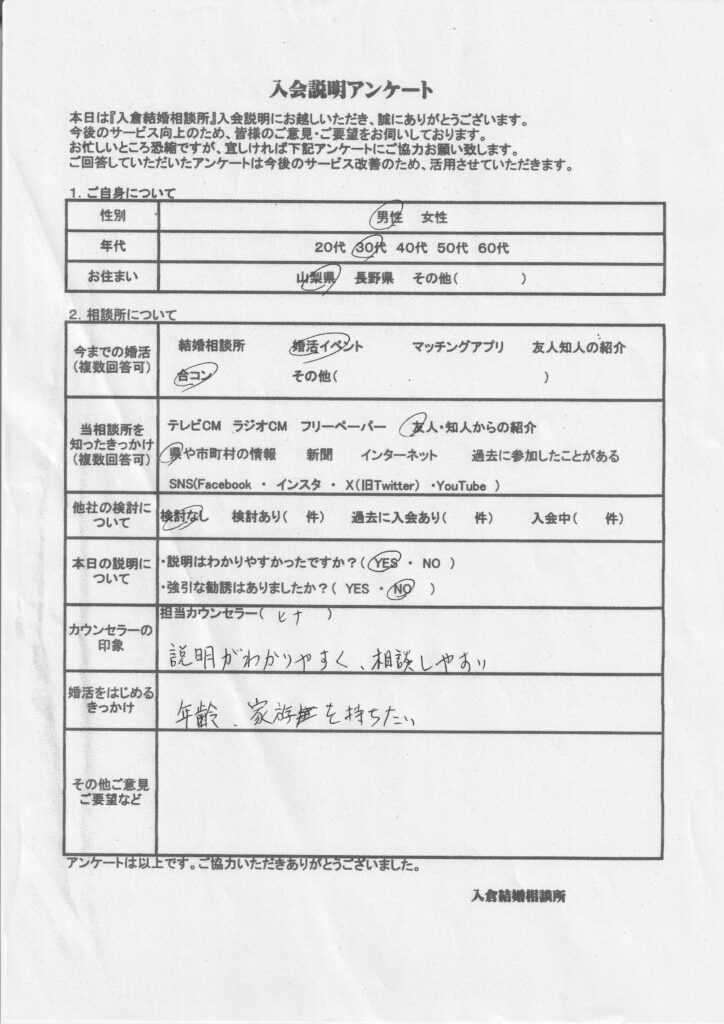 入会説明アンケート
本日は『入倉結婚相談所』入会説明にお越しいただき、誠にありがとうございます。
今後のサービス向上のため、皆様のご意見・ご要望をお伺いしております。
お忙しいところ恐縮ですが、宜しければ下記アンケートにご協力お願い致します。
ご回答していただいたアンケートは今後のサービス改善のため、活用させていただきます。
1. ご自身について
性別 男性 女性
年代 20代 30代 40代 50代 60代
お住まい 山梨県 長野県 その他( )
2. 相談所について
今までの婚活
(複数回答可)
結婚相談所 婚活イベント マッチングアプリ 友人知人の紹介
合コン その他( )
当相談所を
知ったきっかけ
(複数回答可)
テレビCM ラジオCM フリーペーパー 友人・知人からの紹介
県や市町村の情報 新聞 インターネット 過去に参加したことがある
SNS(Facebook ・ インスタ ・ X(旧Twitter) ・YouTube )
他社の検討に
ついて
検討なし 検討あり( 件) 過去に入会あり( 件) 入会中( 件)
本日の説明に
ついて
・説明はわかりやすかったですか?( YES ・ NO )
・強引な勧誘はありましたか?( YES ・ NO )
カウンセラーの
印象
担当カウンセラー( ヒナ )
説明がわかりやすく、相談しやすい
婚活をはじめる
きっかけ
年齢、家族を持ちたい
その他ご意見
ご要望など
アンケートは以上です。ご協力いただきありがとうございました。
入倉結婚相談所